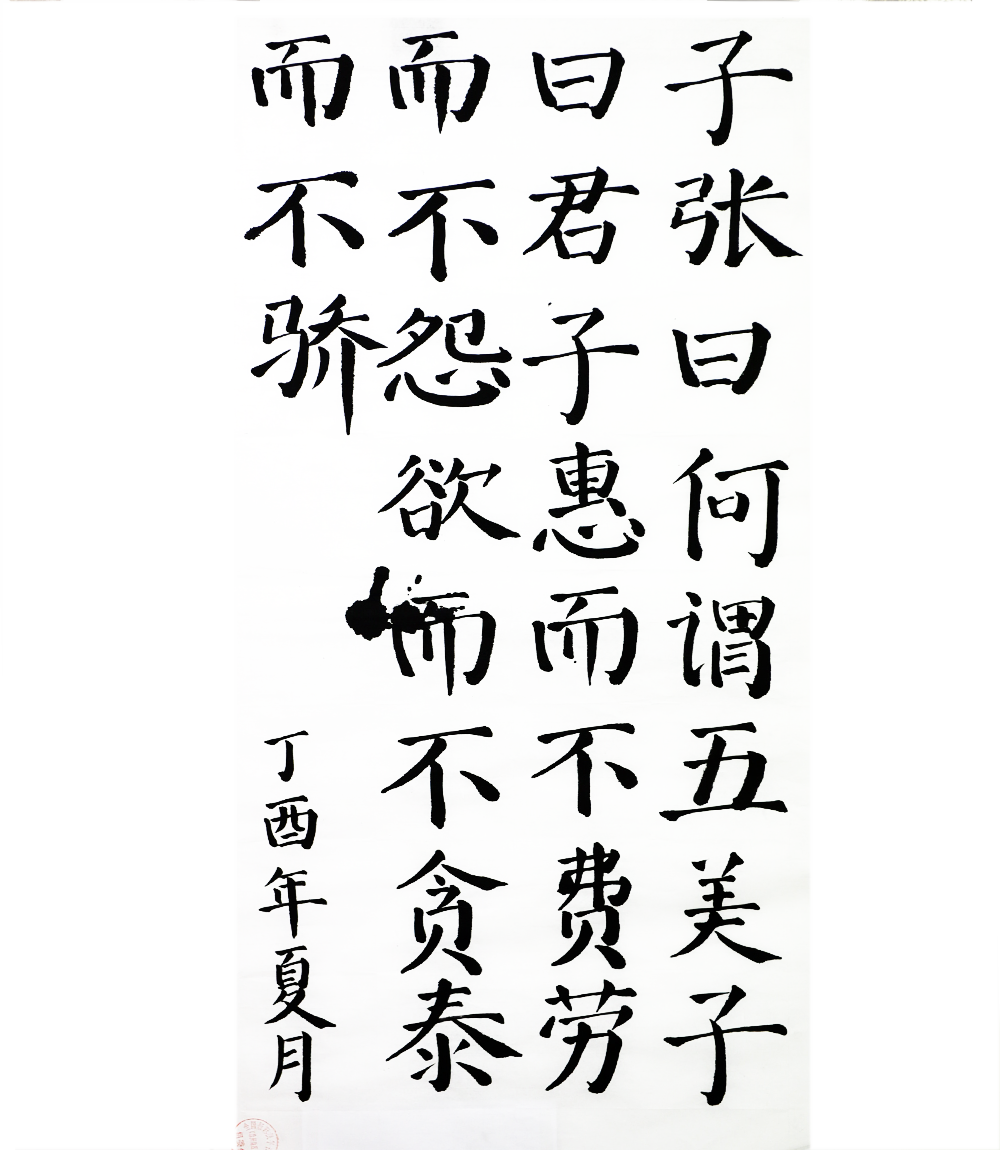 子张曰何谓五美子
曰君子惠而不费劳
而不怨欲而不贪泰
而不骄
丁酉年夏月